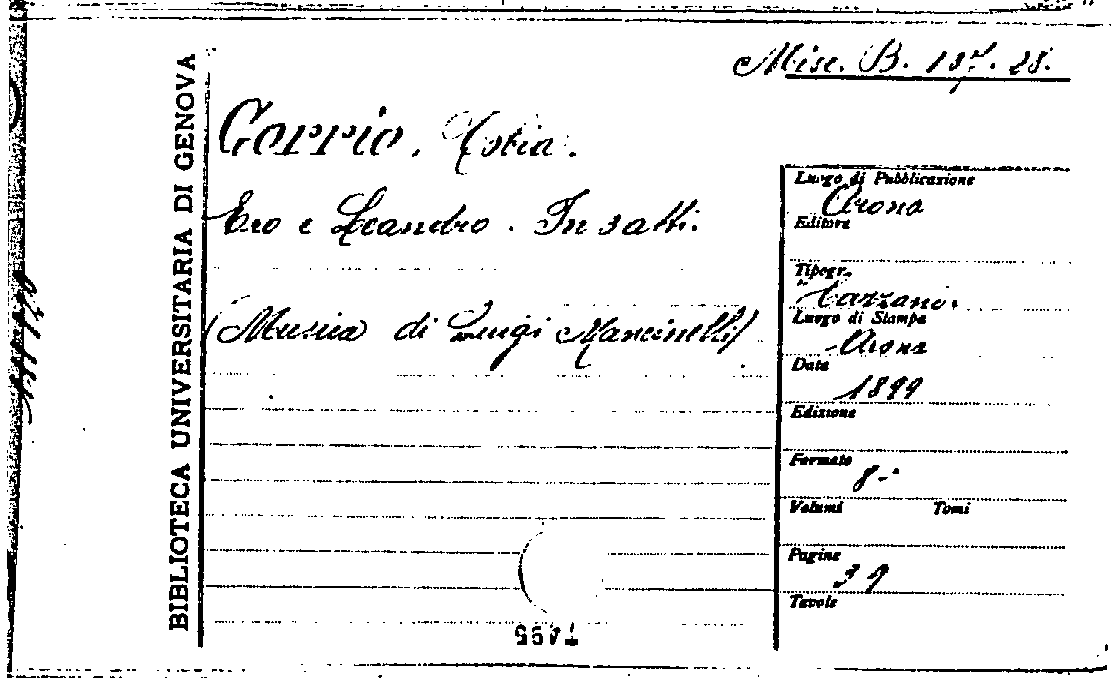 Misc. B. 137. 28.
BIBLIOTECA UNIVERSITARIA DI GENOVA
Gorrio. Tobia.
Ero e Leandro. In 3 atti.
(Musica di Luigi Mancinelli)
Luogo di Pubblicazione
Arona
Editore
Tipogr.
Cazzani.
Luogo di Stampa
Arona
Data
1899
Edizione
Formato
8.
Volumi Tomi
Pagine
39
Tavole